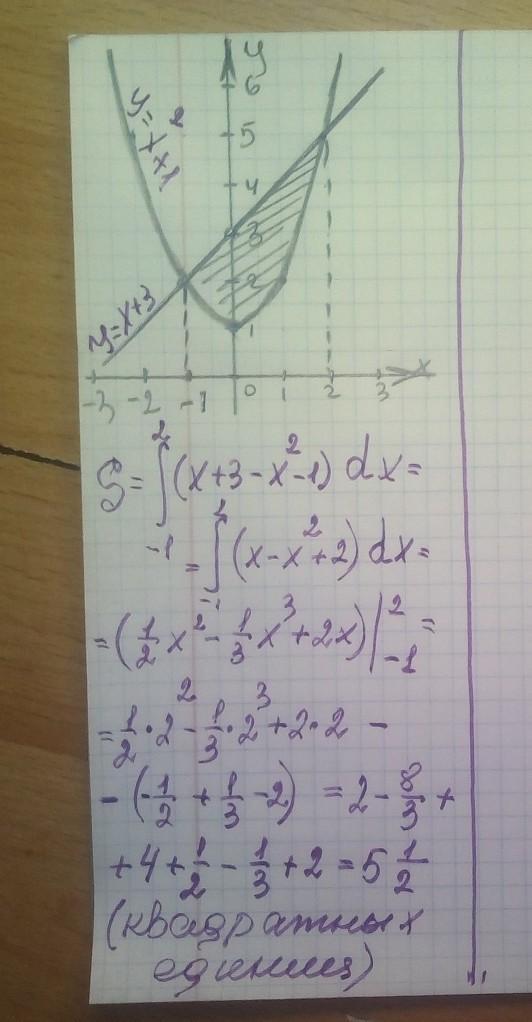 y
6
y=x²+1
5
4
3
2
y=x+3
1
x
-3 -2 -1 0 1 2 3
S=∫₋₁²(x+3-x²-1) dx=
=∫₋₁²(x-x²+2) dx=
=(1/2 x²-1/3 x³+2x)|₋₁²=
=1/2·2²-1/3·2³+2·2 -
-(-1/2+1/3-2) =2-8/3+
+4+1/2-1/3+2=5 1/2
(квадратных
единиц)